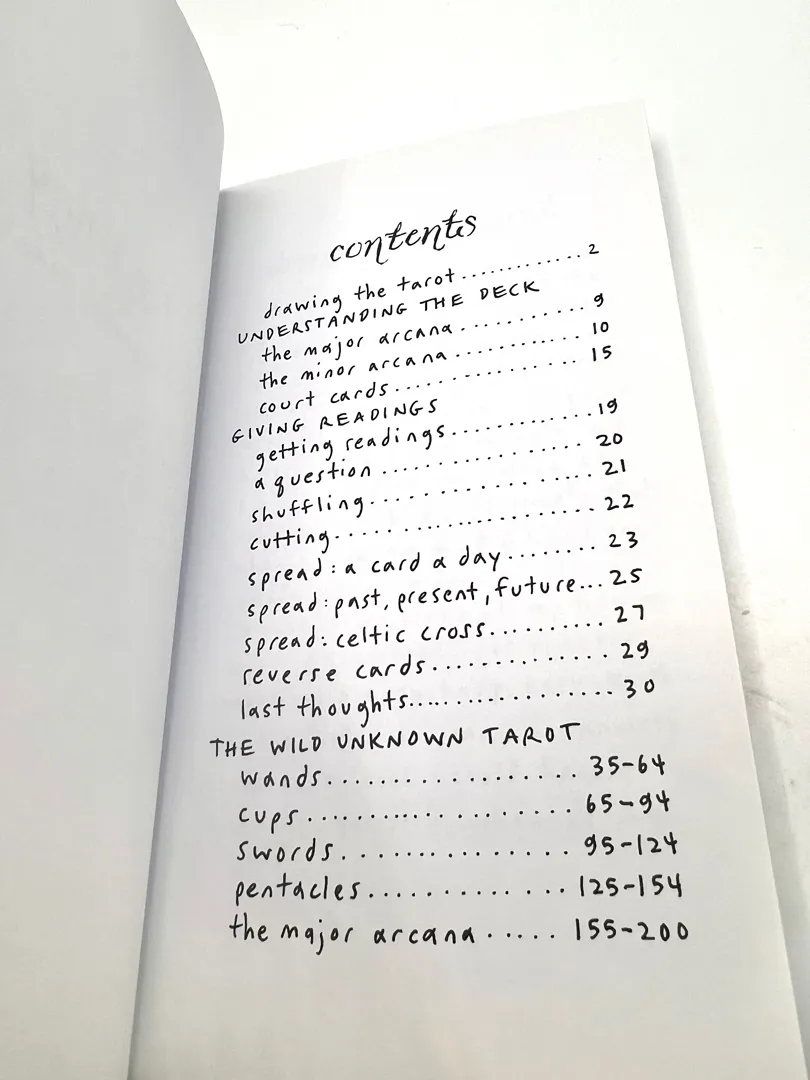 contents
drawing the tarot............ 2
UNDERSTANDING THE DECK
the major arcana.......... 9
the minor arcana........... 10
court cards............... 15
GIVING READINGS
getting readings............ 19
a question ............... 20
shuffling................. 21
cutting.................... 22
spread: a card a day........ 23
spread: past, present, future... 25
spread: celtic cross.......... 27
reverse cards.............. 29
last thoughts................. 30
THE WILD UNKNOWN TAROT
wands.................. 35-64
cups .................... 65-94
swords............... 95-124
pentacles............. 125-154
the major arcana ..... 155-200